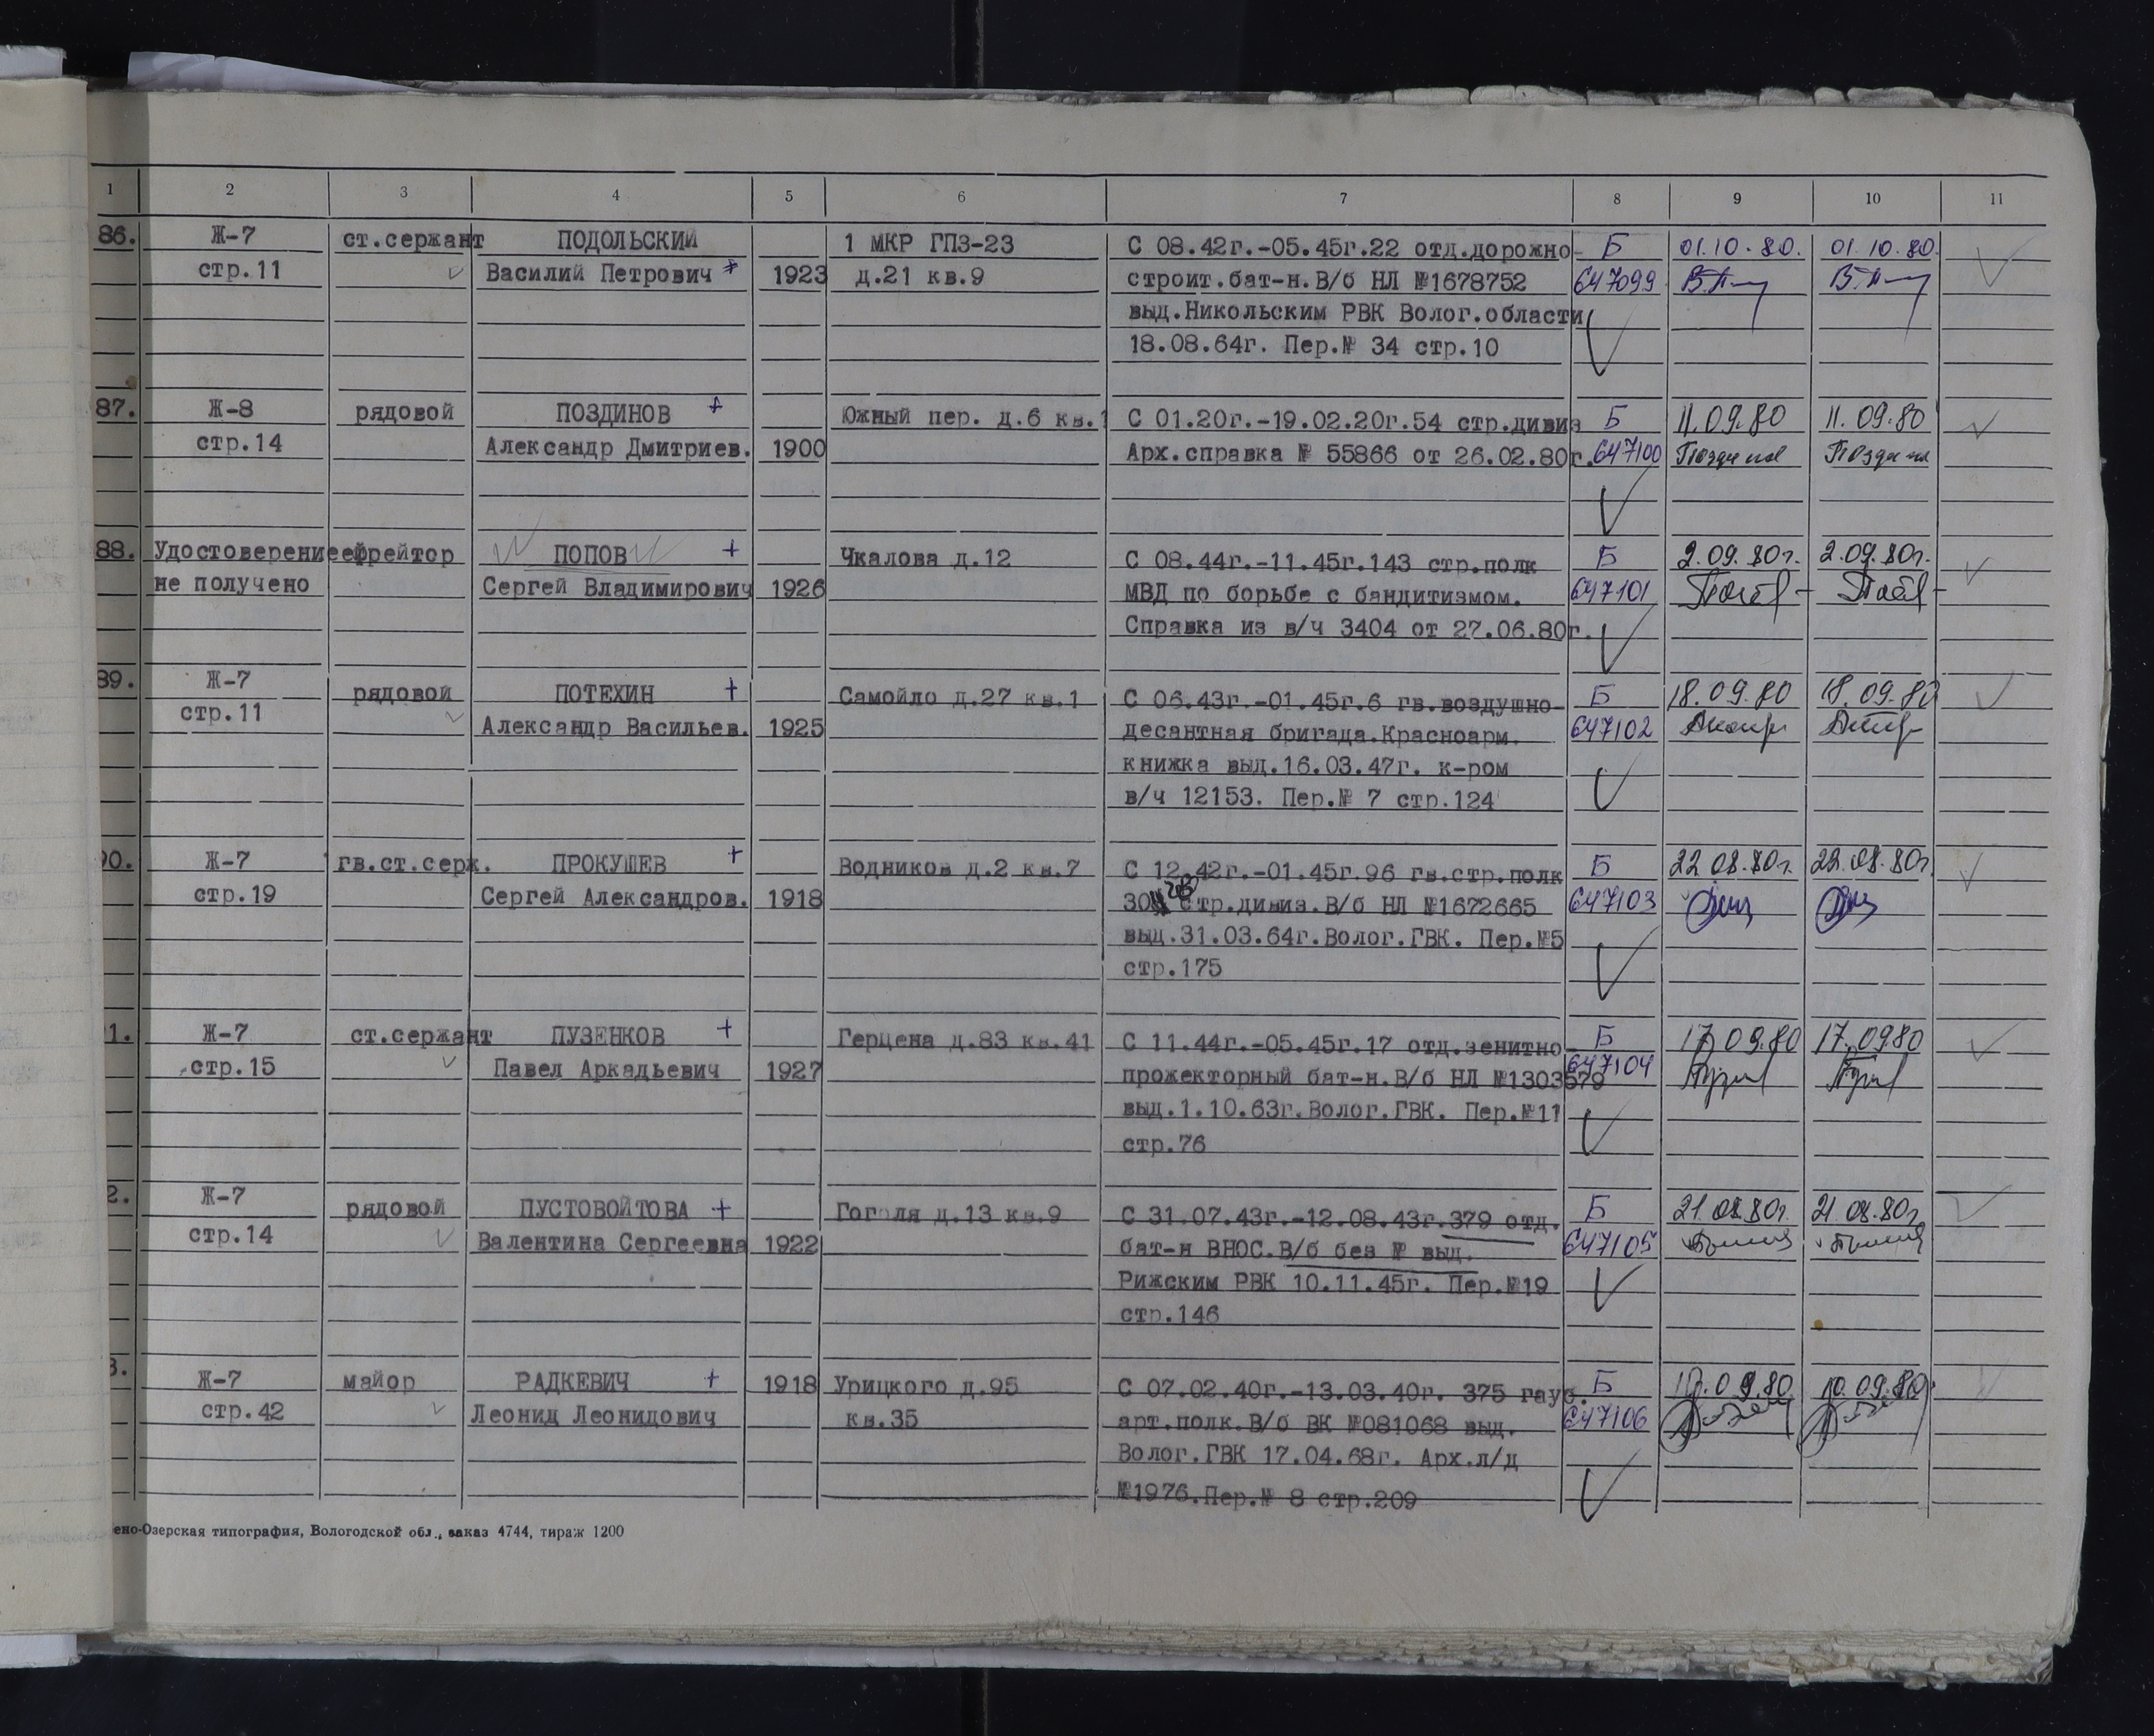 1 2 3 4 5 6 7 8 9 10 11
86. Ж-7 ст.сержант ПОДОЛЬСКИЙ 1 МКР ГПЗ-23 С 08.42г.-05.45г.22 отд.дорожно- Б 01.10.80. 01.10.80.
стр.11 Василий Петрович + 1923 д.21 кв.9 строит.бат-н.В/б НЛ №1678752 647099
выд.Никольским РВК Волог.области
18.08.64г. Пер.№ 34 стр.10
87. Ж-8 рядовой ПОЗДИНОВ + Южный пер. д.6 кв.1 С 01.20г.-19.02.20г.54 стр.дивиз Б 11.09.80 11.09.80
стр.14 Александр Дмитриев. 1900 Арх.справка № 55866 от 26.02.80г. 647100
88. Удостоверение ефрейтор ПОПОВ + Чкалова д.12 С 08.44г.-11.45г.143 стр.полк Б 2.09.80г. 2.09.80г.
не получено Сергей Владимирович 1926 МВД по борьбе с бандитизмом. 647101
Справка из в/ч 3404 от 27.06.80г.
89. Ж-7 рядовой ПОТЕХИН + Самойло д.27 кв.1 С 06.43г.-01.45г.6 гв.воздушно- Б 18.09.80 18.09.80
стр.11 Александр Васильев. 1925 десантная бригада.Красноарм. 647102
книжка выд.16.03.47г. к-ром
в/ч 12153. Пер.№ 7 стр.124
90. Ж-7 гв.ст.серж. ПРОКУШЕВ + Водников д.2 кв.7 С 12.42г.-01.45г.96 гв.стр.полк Б 22.08.80г. 22.08.80г.
стр.19 Сергей Александров. 1918 30 гв стр.дивиз.В/б НЛ №1672665 647103
выд.31.03.64г.Волог.ГВК. Пер.№5
стр.175
1. Ж-7 ст.сержант ПУЗЕНКОВ + Герцена д.83 кв.41 С 11.44г.-05.45г.17 отд.зенитно- Б 17.09.80 17.09.80
стр.15 Павел Аркадьевич 1927 прожекторный бат-н.В/б НЛ №1303579 647104
выд.1.10.63г.Волог.ГВК. Пер.№11
стр.76
2. Ж-7 рядовой ПУСТОВОЙТОВА + Гоголя д.13 кв.9 С 31.07.43г.-12.08.43г.379 отд. Б 21.08.80г. 21.08.80г.
стр.14 Валентина Сергеевна 1922 бат-н ВНОС.В/б без № выд. 647105
Рижским РВК 10.11.45г. Пер.№19
стр.146
3. Ж-7 майор РАДКЕВИЧ + 1918 Урицкого д.95 С 07.02.40г.-13.03.40г. 375 гауб. Б 10.09.80 10.09.80
стр.42 Леонид Леонидович кв.35 арт.полк.В/б ВК №081068 выд. 647106
Волог.ГВК 17.04.68г. Арх.л/д
№1976.Пер.№ 8 стр.209
ено-Озерская типография, Вологодской обл., заказ 4744, тираж 1200